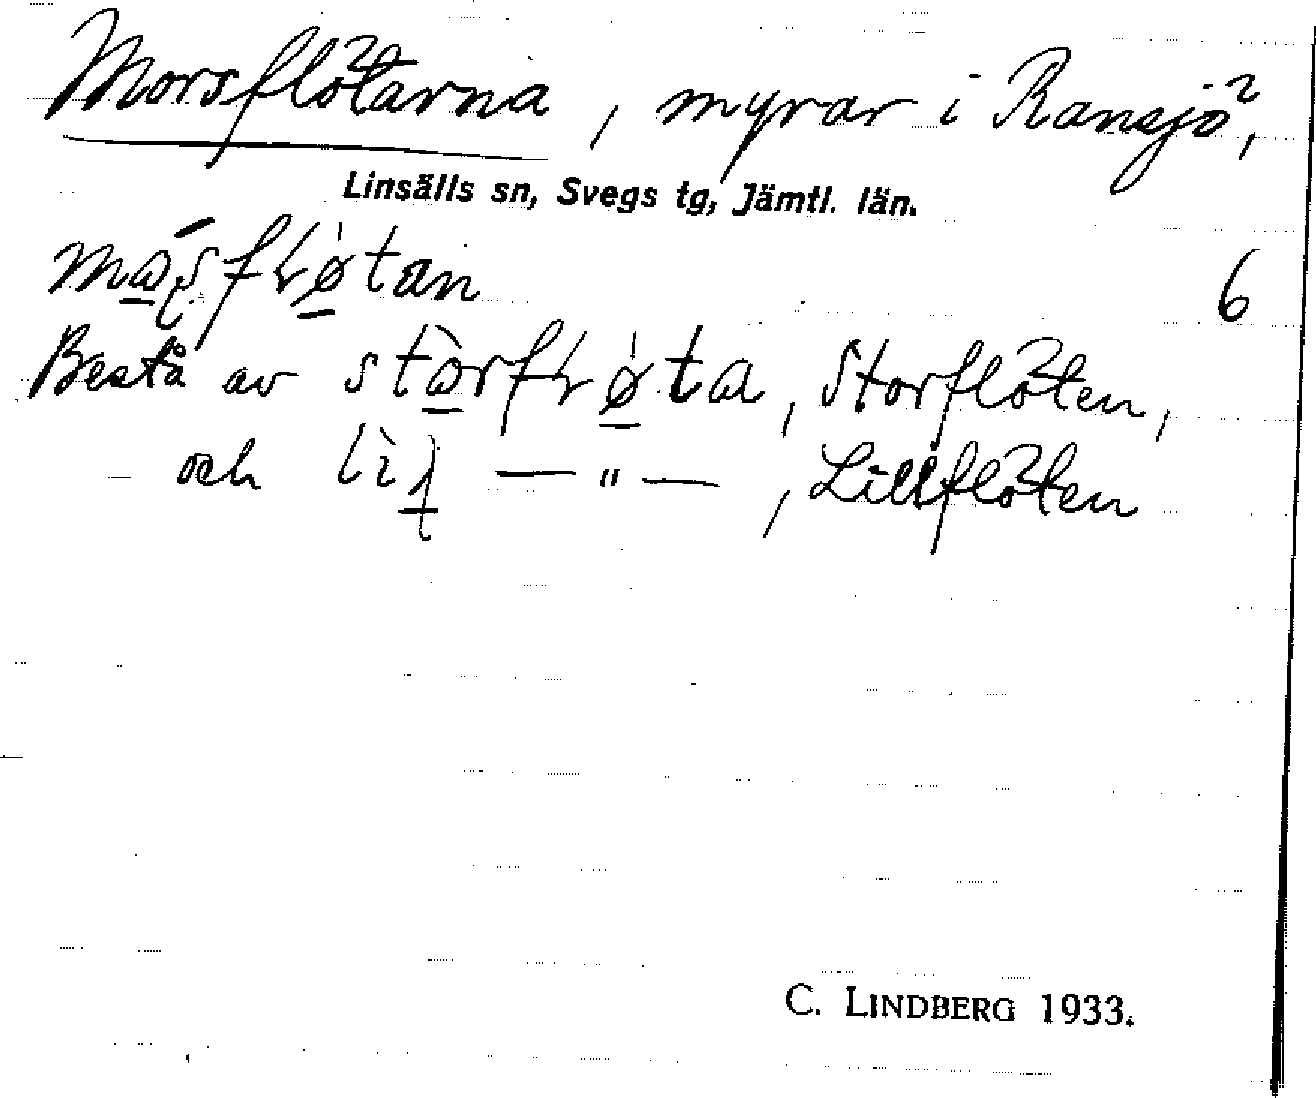 Morsflötarna, myrar i Ransjö,
Linsälls sn, Svegs tg, Jämtl. län.
6
Bestå av Storflöten,
och — " —, Lillflöten
C. LINDBERG 1933.